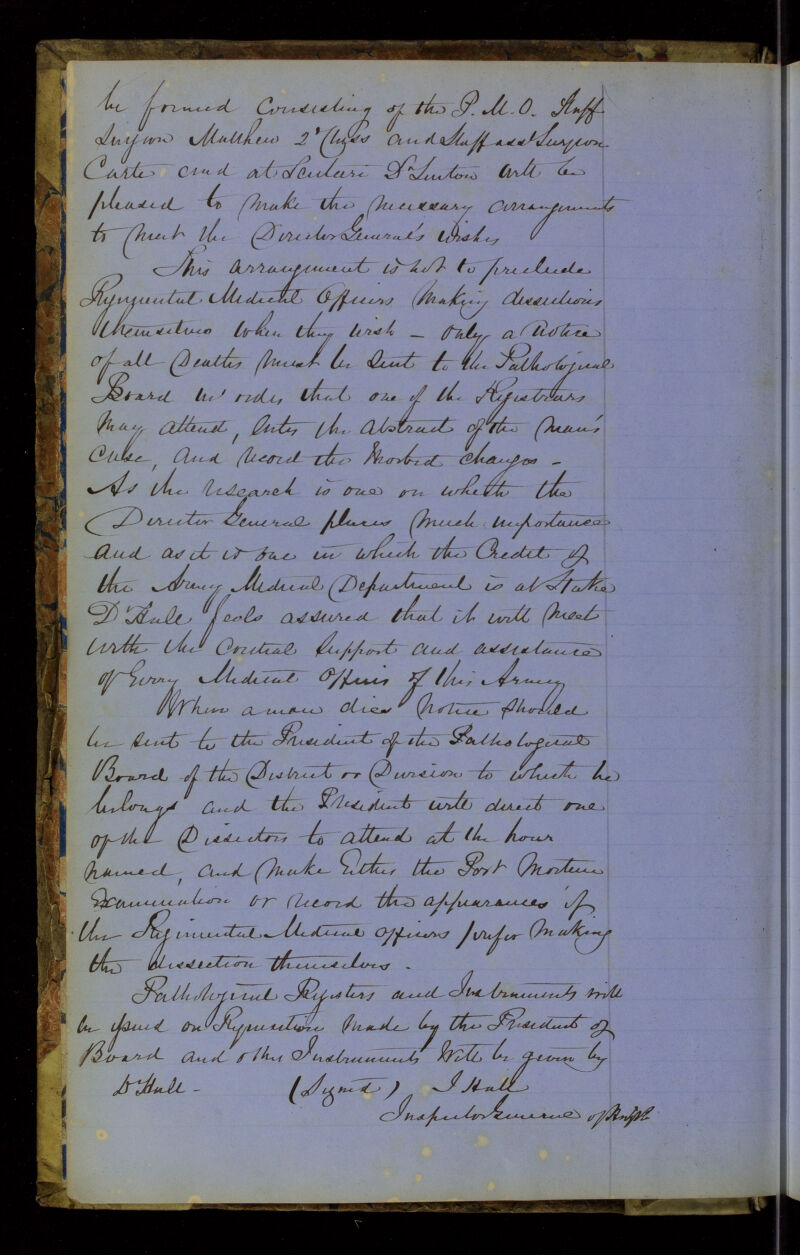 be formed consisting of the P. M. O. Staff
Surgeon Matthew 2d Class and Staff asst Surgeon
Carte and at Scutari Dr Linton will be
pleased to make the necessary arrangements
to meet the Director General's wishes
This arrangement is not to preclude
Regimental Medical Officers making dissections
themselves when they wish – only a notice
of all Deaths must be sent to the Pathological
Board in order that one of the Registrars
may attend, enter the abstract of the man's
case, and record the morbid changes –
As the research is one on which the
Director General places much importance
and as it is one in which the Credit of
the Army Medical Department is at Stake
Dr Hall feels assured that it will meet
with the cordial support and assistance
of Every Medical Officer of this Army
When a man dies notice should
be sent to the President of the Pathological
Board of the District or Division to which he
belongs and the President will direct one
of the Dissectors to attend at the hour
named, and make Either the Post Mortem
Examination or record the appearances if
the Regimental Medical officers prefer making
the dissection themselves.
Pathological Registers and Instruments will
be issued on Requisition made by the President of
Board and other Instruments will be given by
Dr Hall – (Signed) J Hall
Inspector General of Hospls